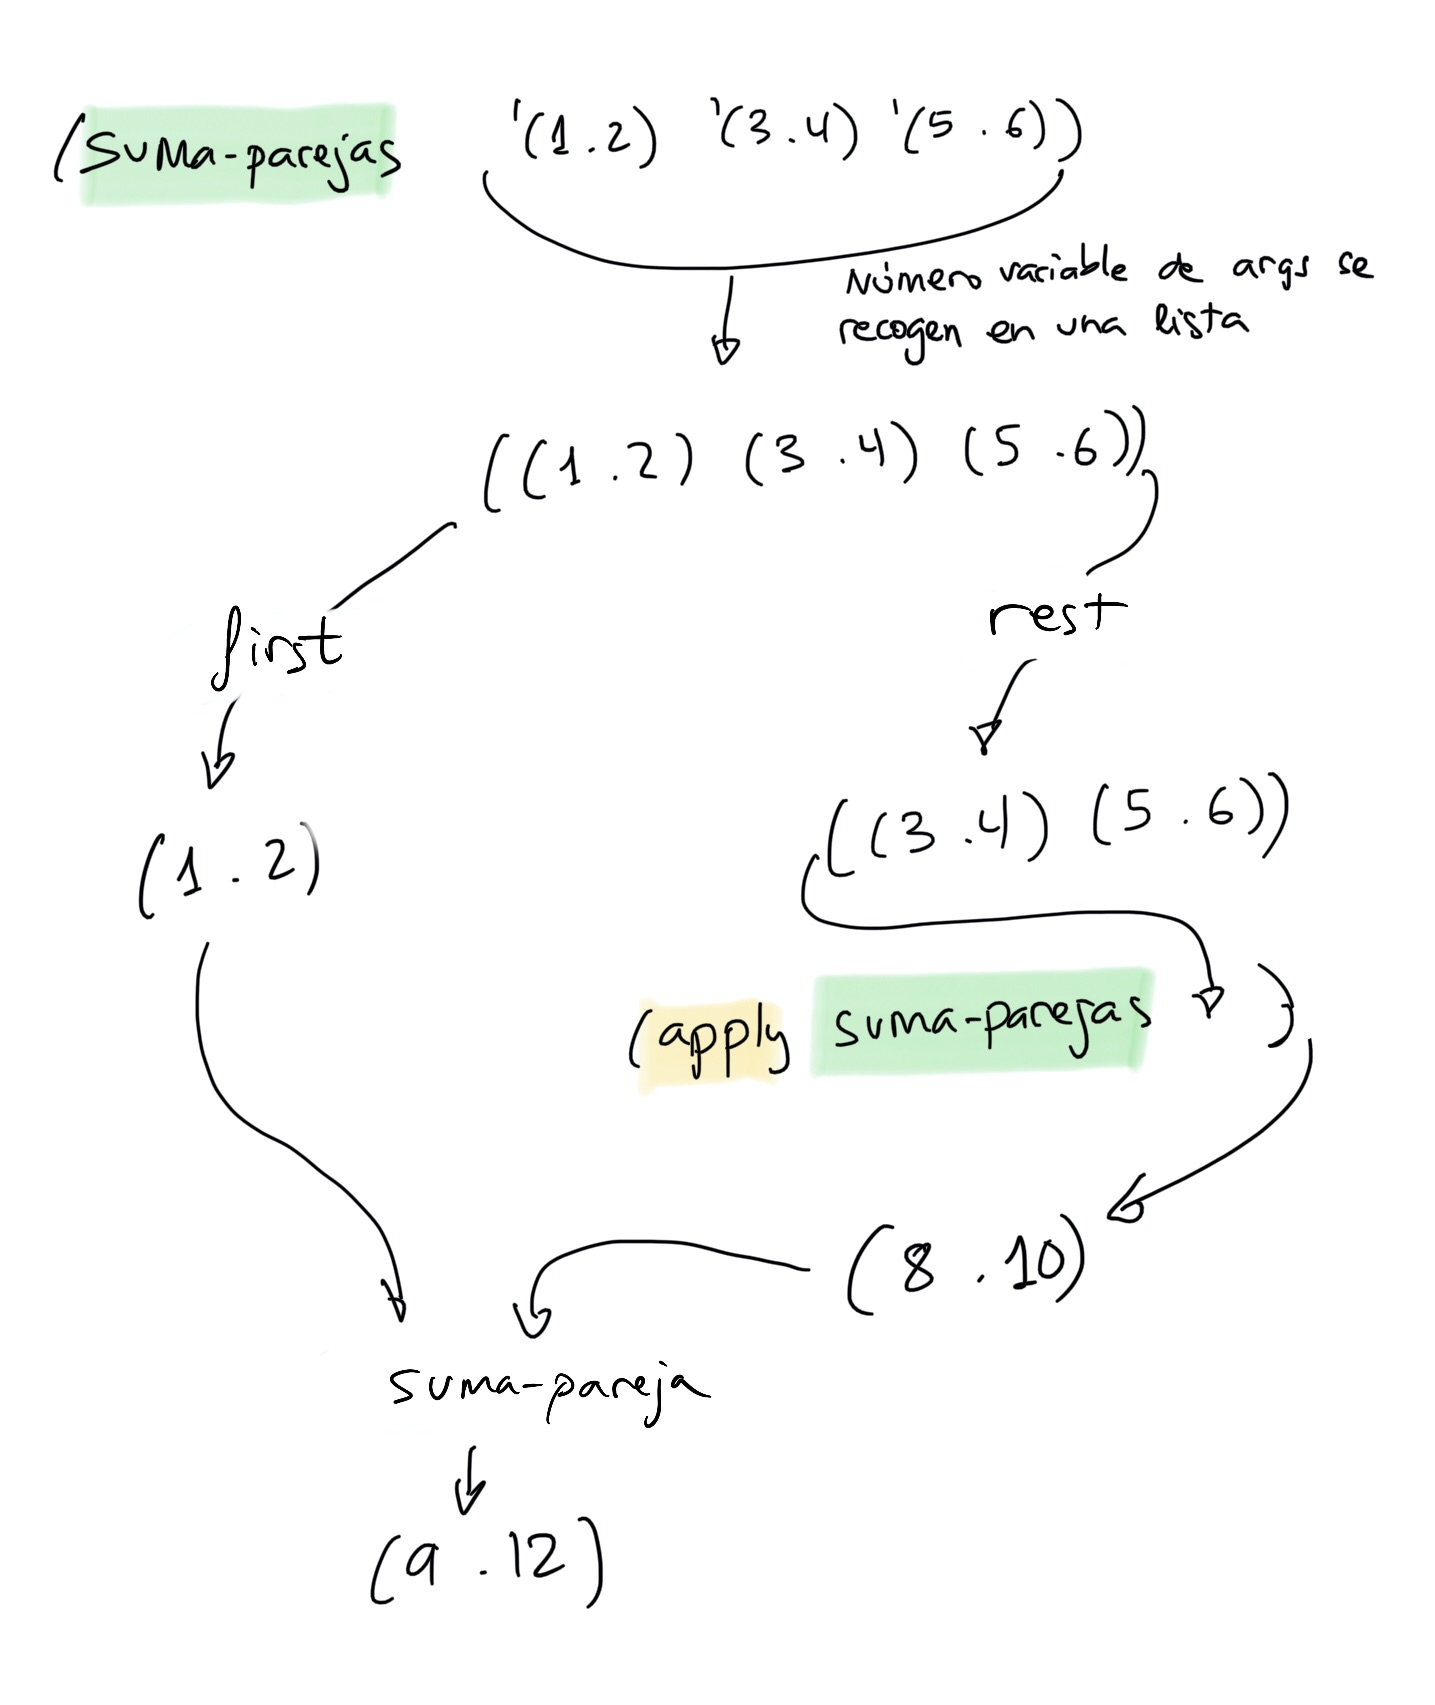 (suma-parejas '(1 . 2) '(3 . 4) '(5 . 6))
Número variable de args se
recogen en una lista
((1 . 2) (3 . 4) (5 . 6))
first
rest
(1 . 2)
((3 . 4) (5 . 6))
(apply suma-parejas )
(8 . 10)
suma-pareja
(9 . 12)